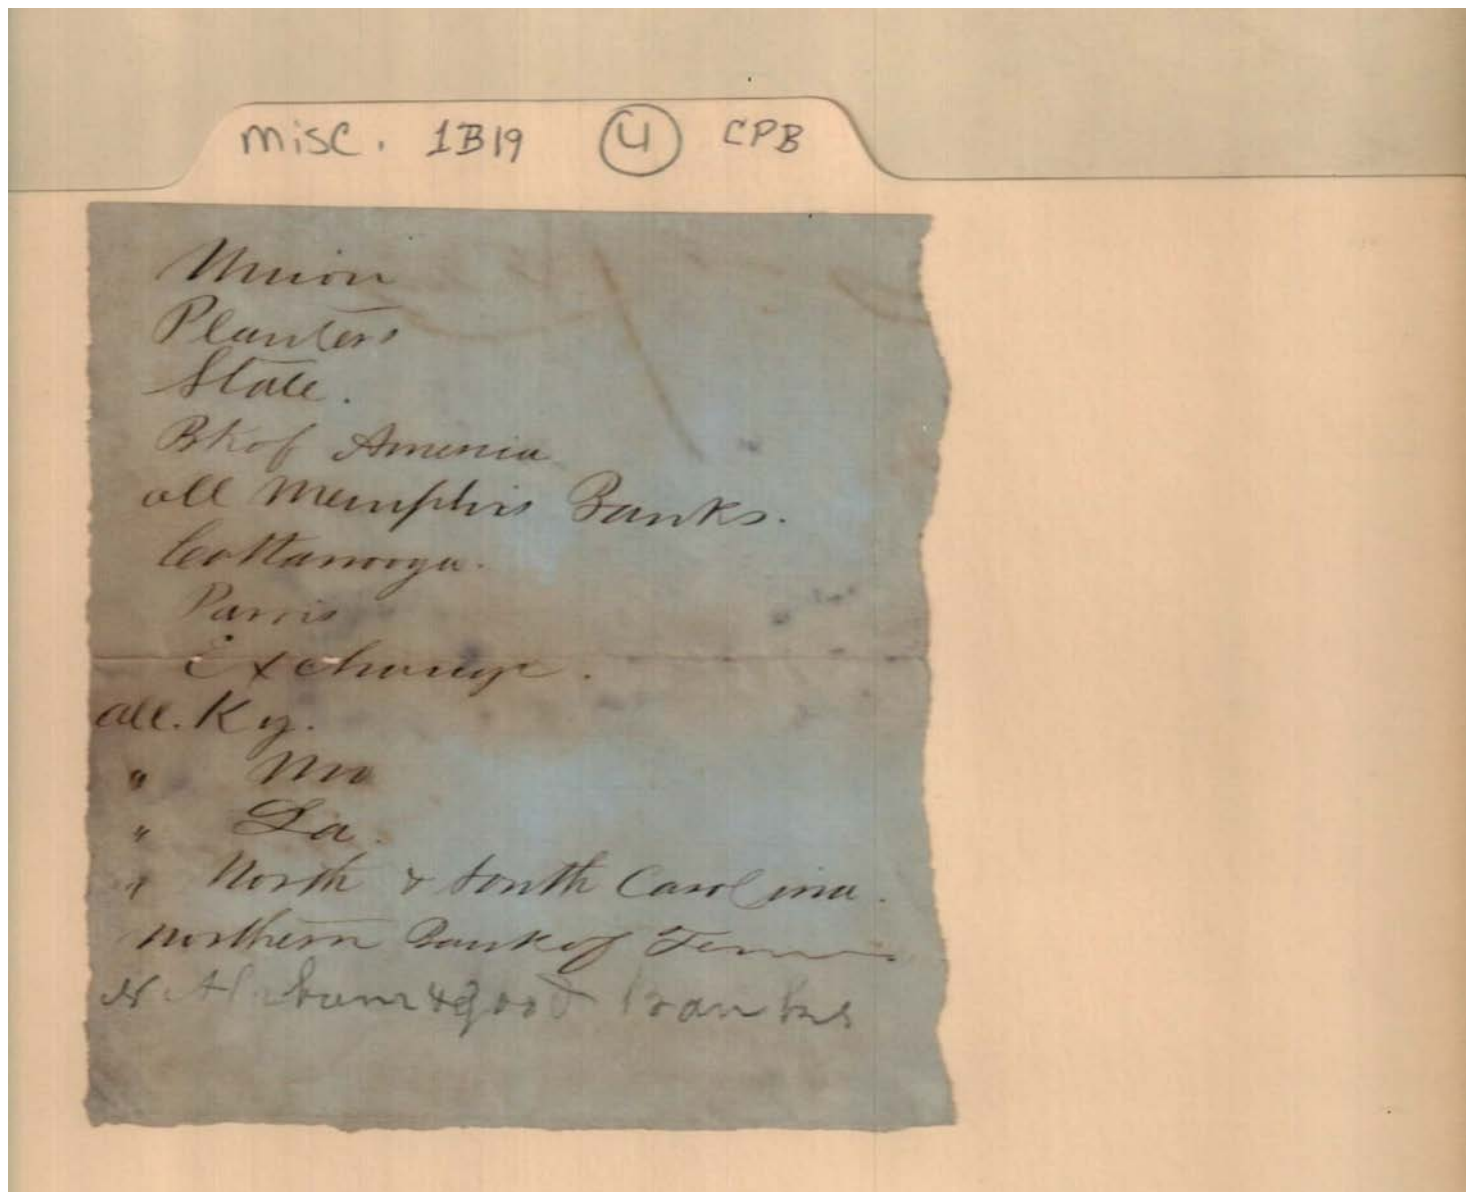 misc. 1B19 4 CPB
Union
Planters
State.
Bk of America
all Memphis Banks.
Cottanooga.
Parris
Exchange.
all. Ky.
" Mo
" La.
" North & South Carolina.
Northern Bank of Tenn
& good Banks